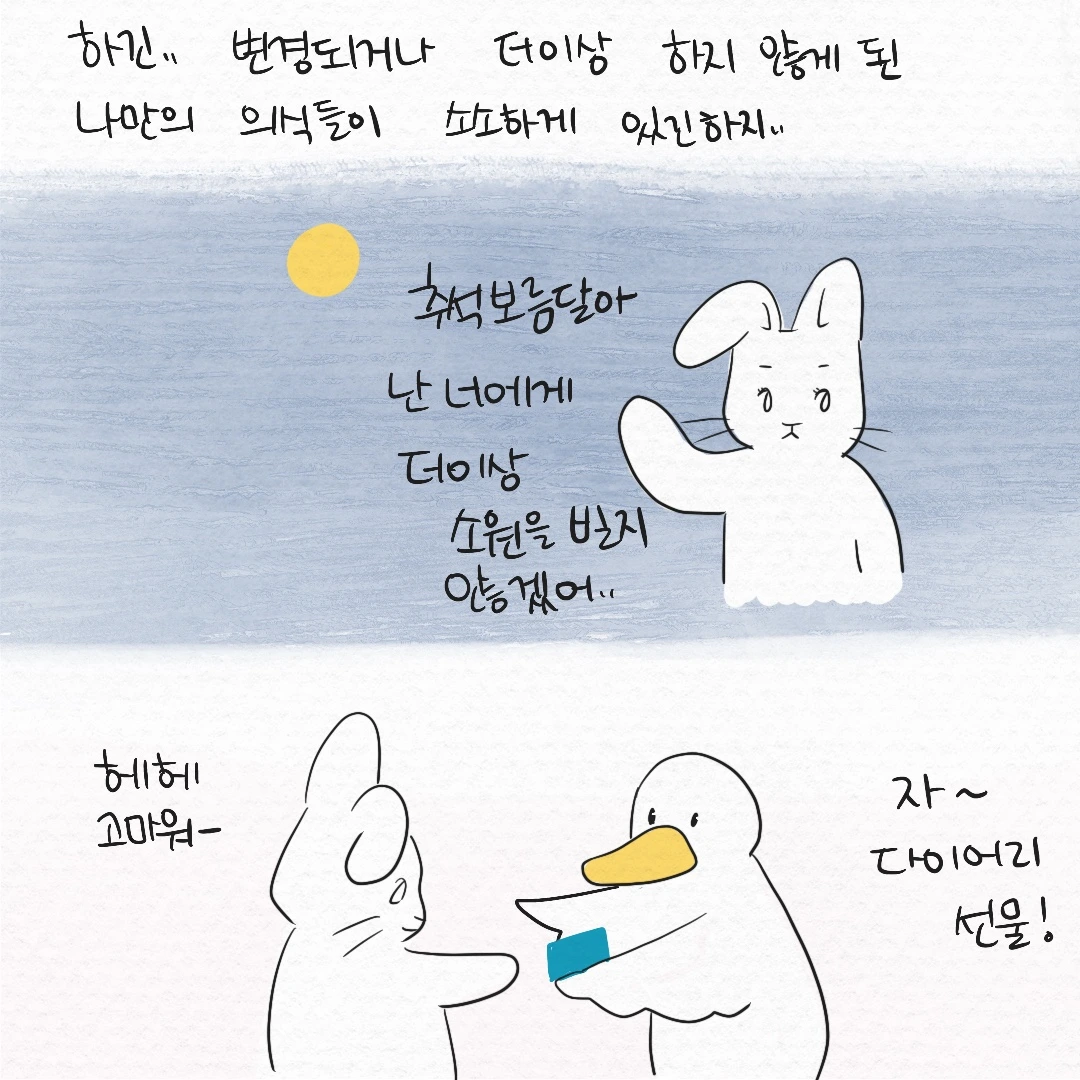 하긴.. 변경되거나 더이상 하지 않게 된
나만의 의식들이 소소하게 있긴하지..
추석보름달아
난 너에게
더이상
소원을 빌지
않겠어..
헤헤
고마워-
자~
다이어리
선물!